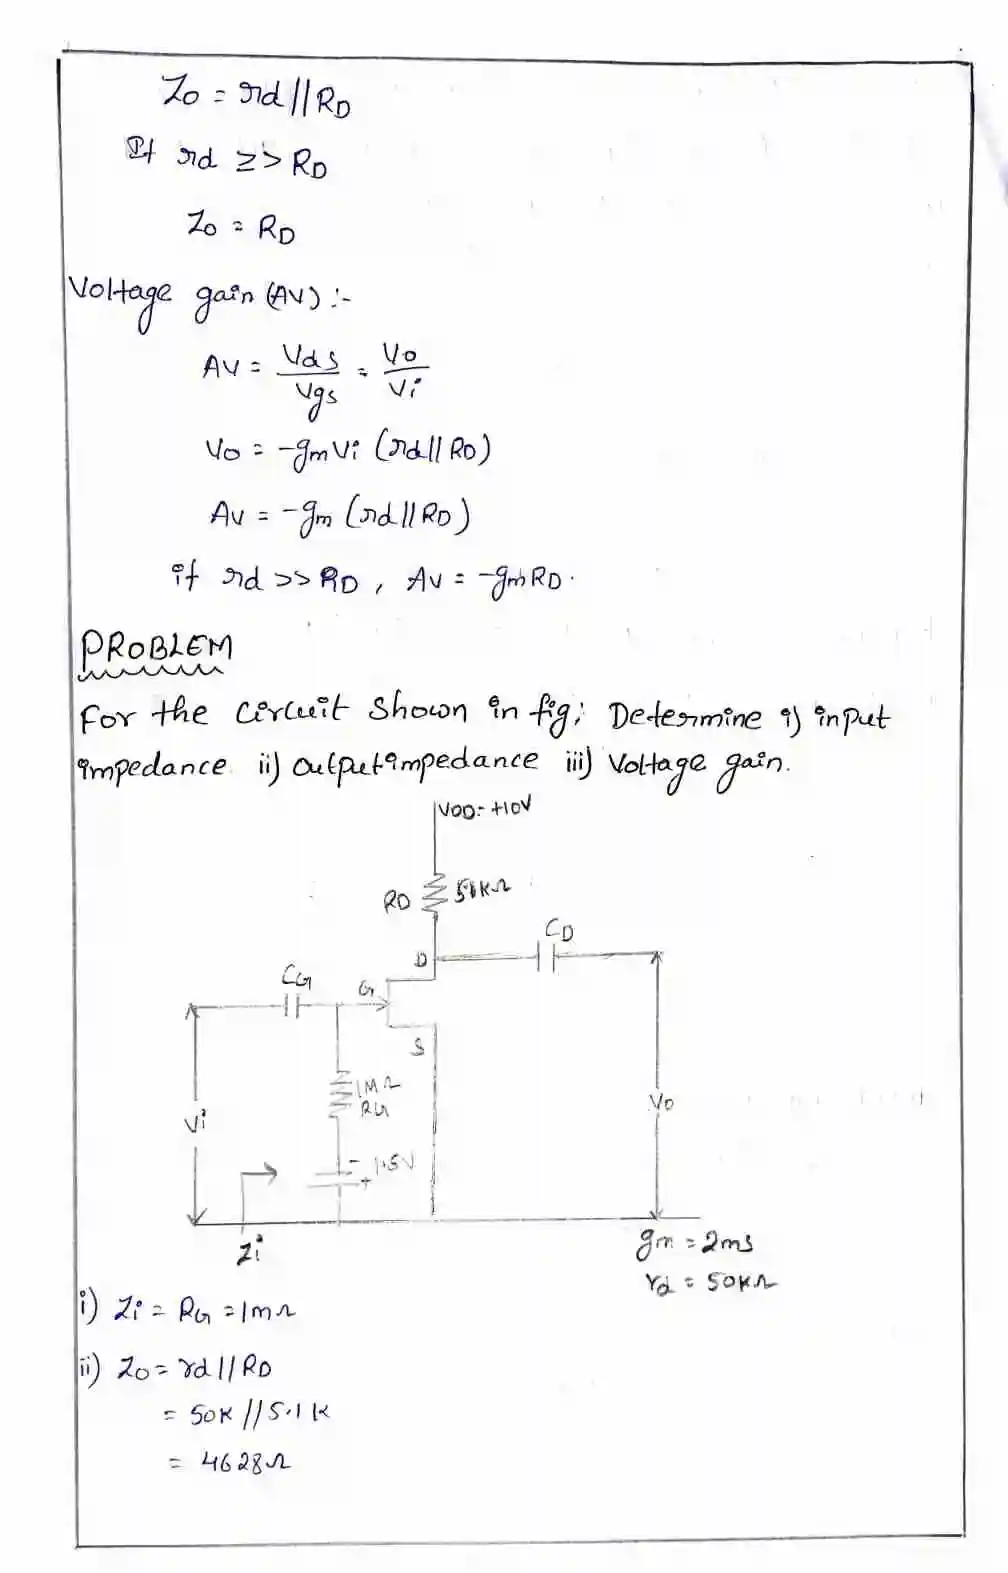 Zo = rd || RD
If rd >> RD
Zo = RD
Voltage gain (AV) :-
AV = Vds/Vgs = Vo/Vi
Vo = -gmVi (rd || RD)
AV = -gm (rd || RD)
if rd >> RD, AV = -gmRD.
PROBLEM
For the circuit shown in fig; Determine i) input
impedance ii) output impedance iii) Voltage gain.
VDD = +10V
RD 5.1KΩ
CD
D
CG
G
S
1MΩ
RG
Vi
Vo
- 1.5V
+
Zi
gm = 2ms
rd = 50KΩ
i) Zi = RG = 1mΩ
ii) Zo = rd || RD
= 50K // 5.1K
= 4628Ω